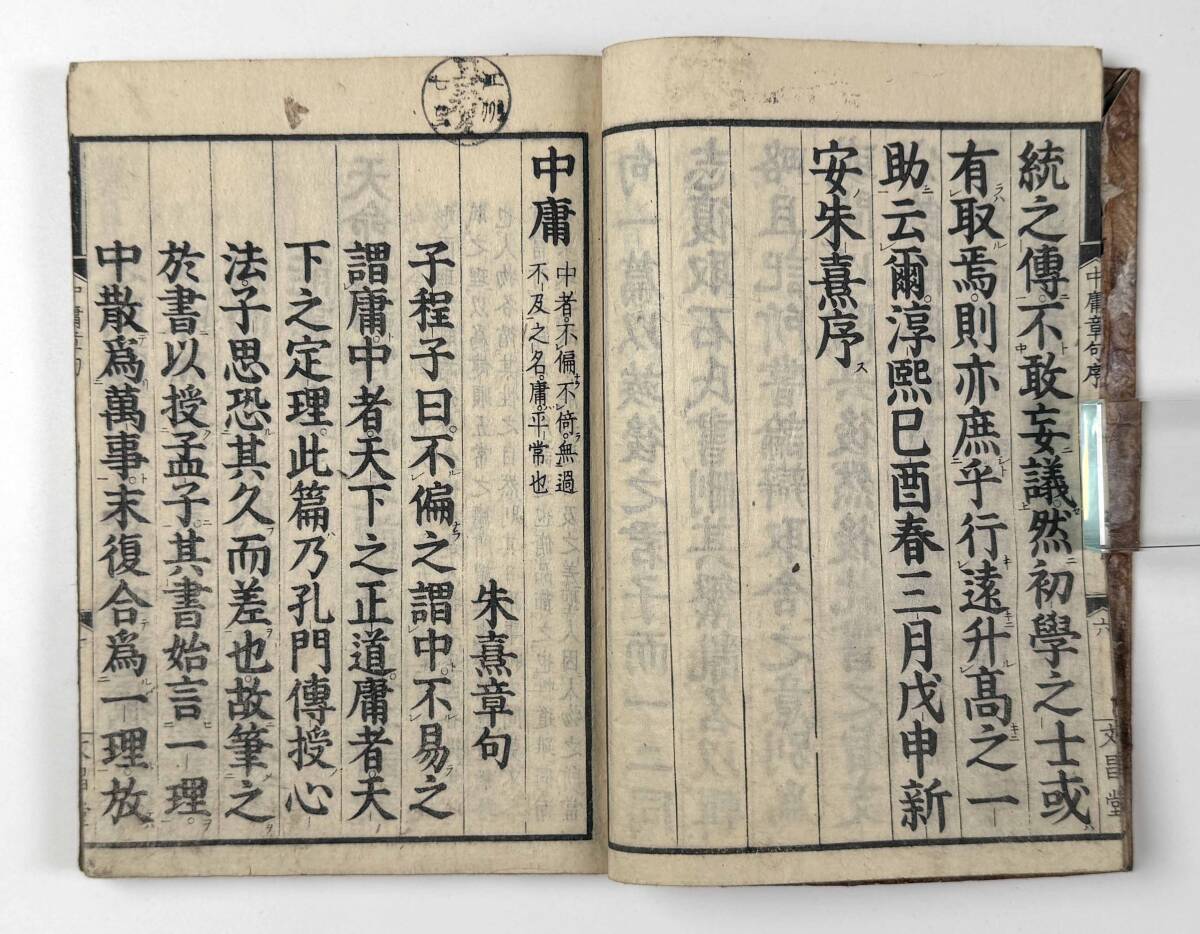 統之傳。不敢妄議。然初學之士或
有取焉。則亦庶乎行遠升髙之一
助云爾。淳熙己酉春三月戊申新
安朱熹序
中庸章句序
六
文昌堂
中庸
中者。不偏不倚。無過
不及之名。庸。平常也
朱熹章句
子程子曰。不偏之謂中。不易之
謂庸。中者。天下之正道。庸者。天
下之定理。此篇乃孔門傳授心
法。子思恐其久而差也。故筆之
於書以授孟子。其書始言一理。
中散爲萬事。末復合爲一理。放